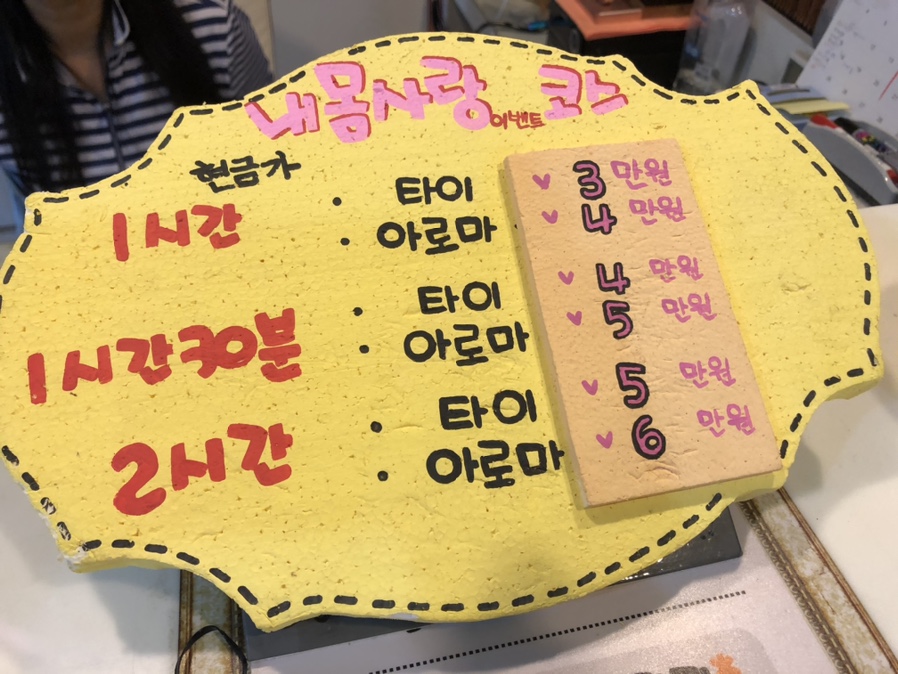 내몸사랑 이벤트 코스
현금가
1시간
· 타이 3만원
· 아로마 4만원
1시간30분
· 타이 4만원
· 아로마 5만원
2시간
· 타이 5만원
· 아로마 6만원